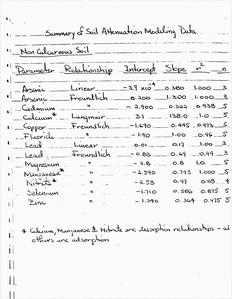 Summary of Soil Attenuation Modeling Data
Non Calcareous Soil
Parameter Relationship Intercept Slope r² n
Arsenic Linear 0.380 1.000 3
Arsenic Freundlich 0.200 1.300 1.000 3
Cadmium " -2.900 0.322 0.938 5
Calcium* Langmuir 3.1 138.0 1.0 5
Copper Freundlich -1.690 0.445 0.973 5
Fluoride " -1.90 1.00 0.96 5
Lead Linear 0.01 0.17 1.00 3
Lead Freundlich -0.83 0.69 0.99 3
Magnesium " -1.8 0.8 1.0 5
Manganese* " -2.590 0.793 1.000 5
Nitrate* " -2.53 0.97 0.98 4
Selenium " -1.710 0.586 0.875 5
Zinc " -1.390 0.364 0.975 5
* Calcium, Manganese & Nitrate are desorption relationships - all
others are adsorption